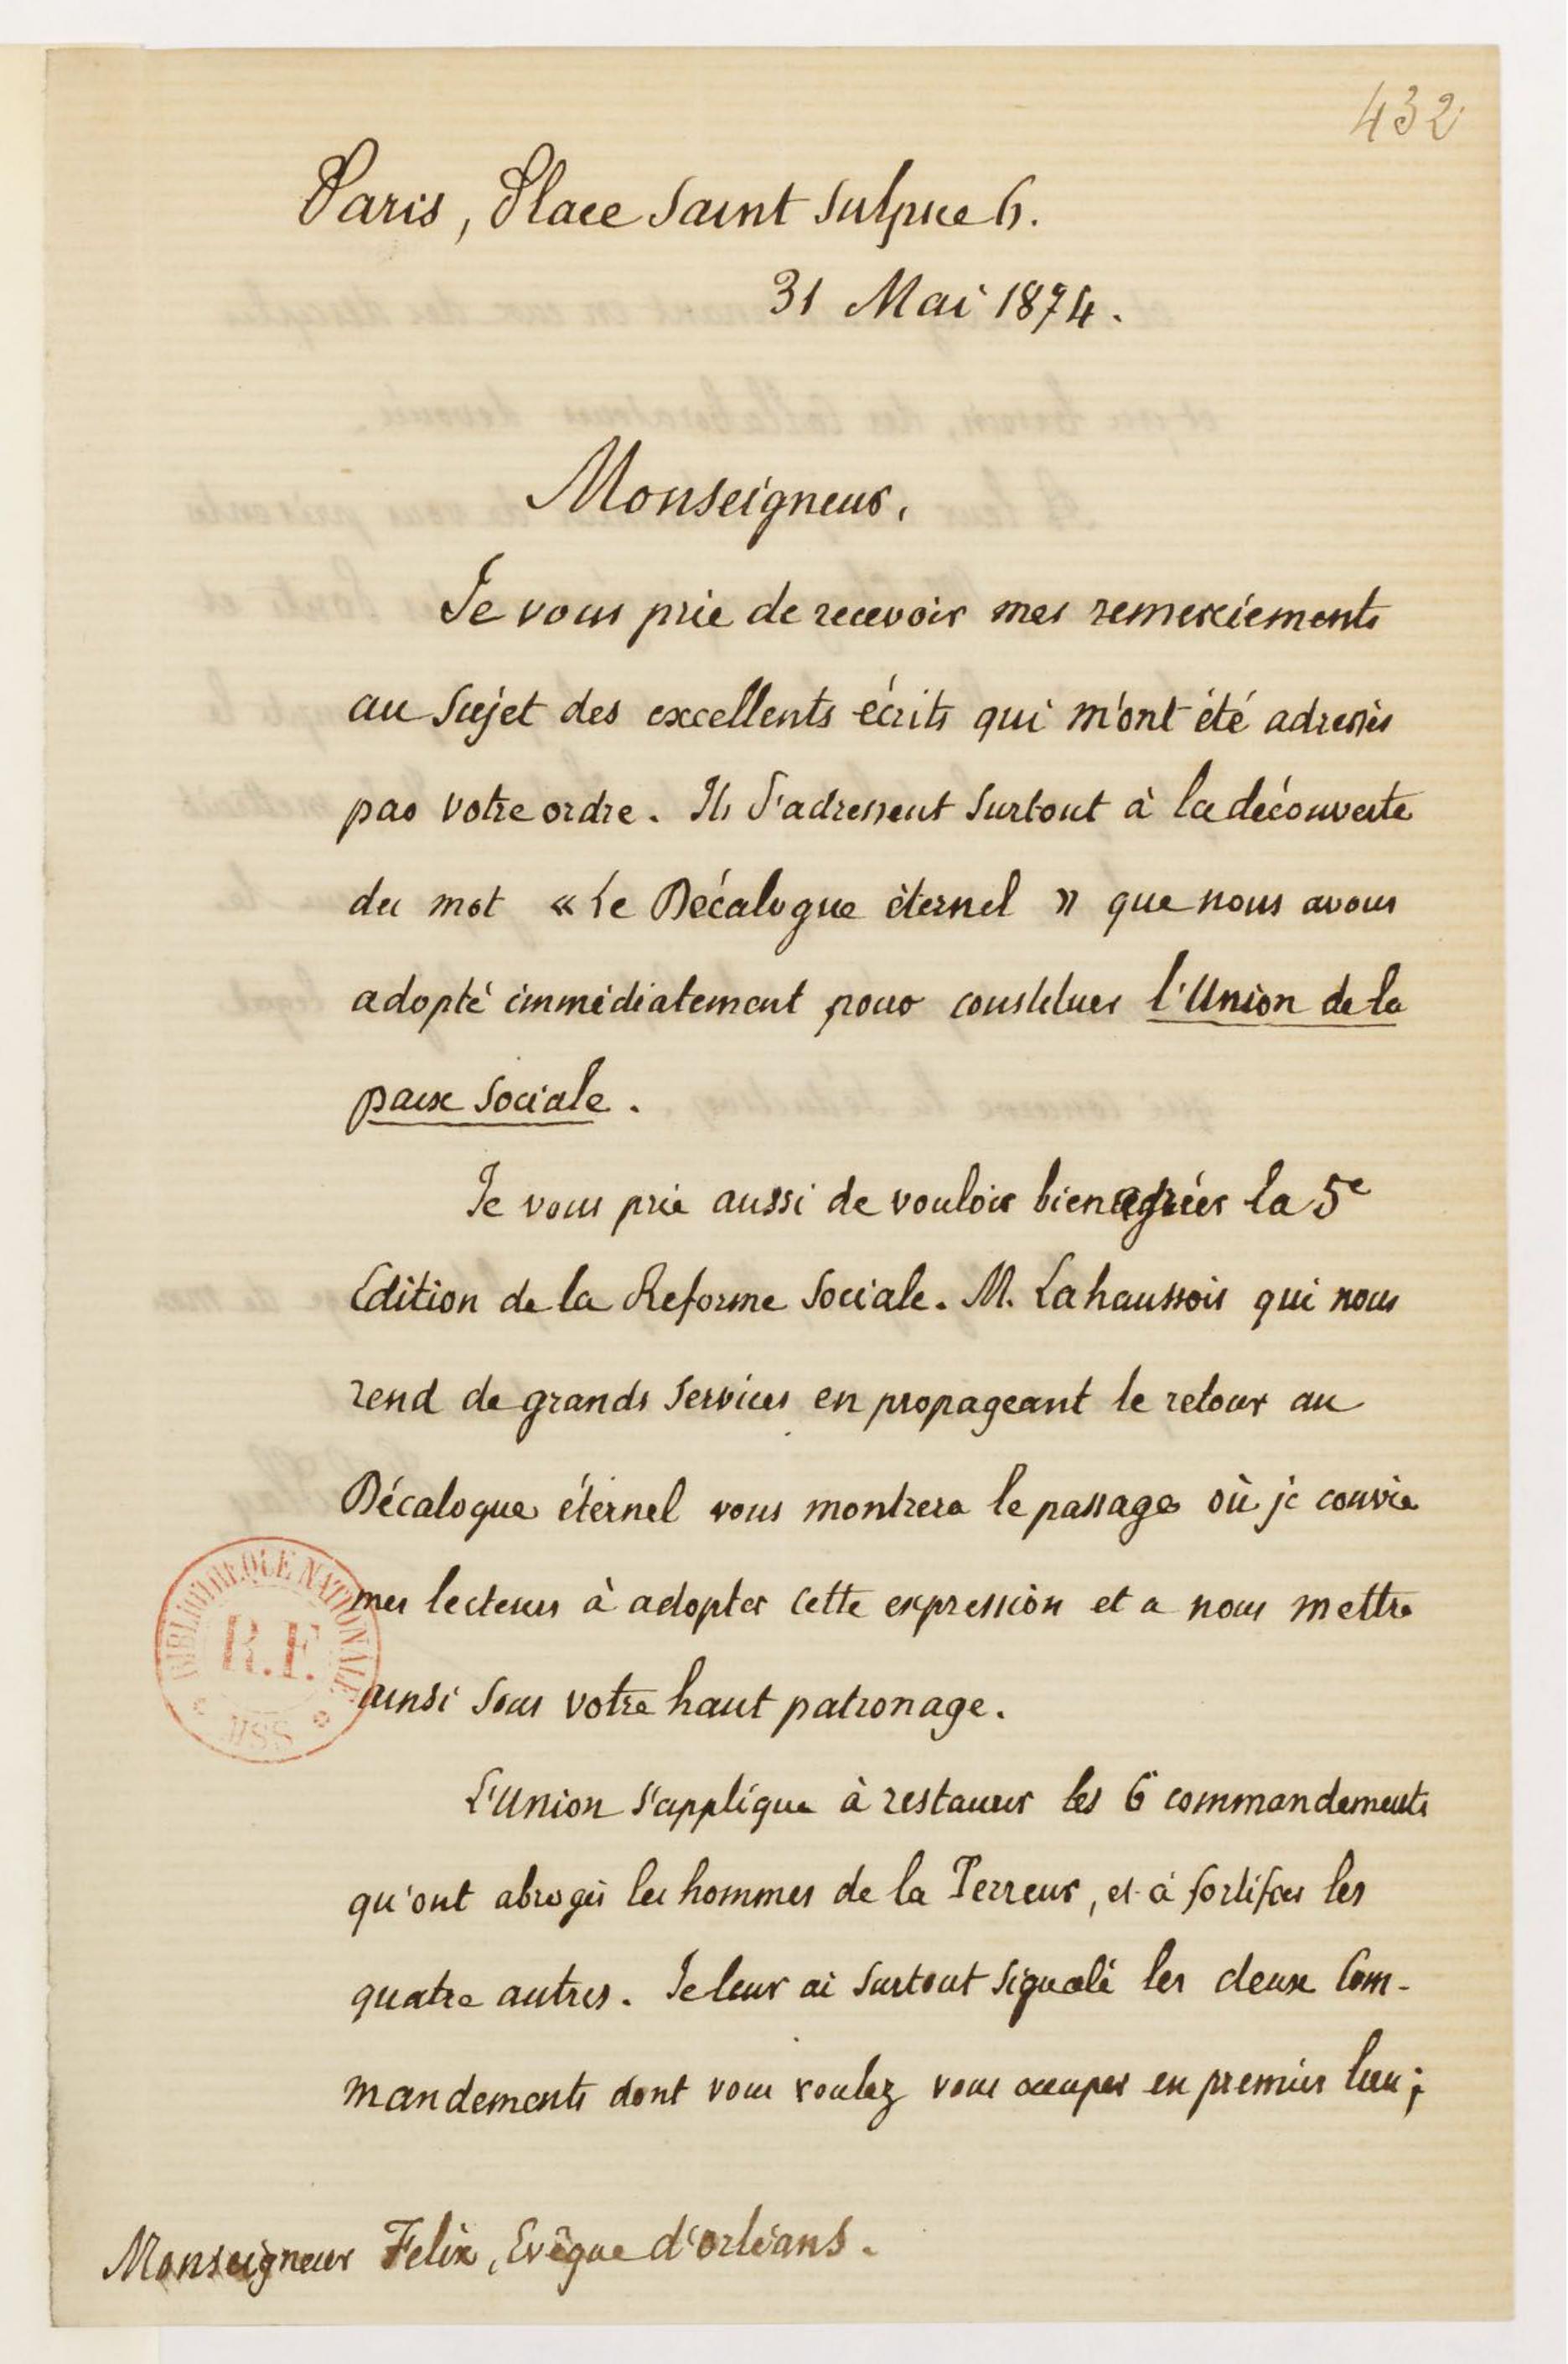 432
Paris, Place Saint Sulpice 6.
31 Mai 1874.
Monseigneur,
Je vous prie de recevoir mes remerciements
au Sujet des excellents écrits qui m'ont été adressés
par votre ordre. Ils S'adressent Surtout à la découverte
du mot « Le Décalogue éternel » que nous avons
adopté immédiatement pour constituer l'Union de la
paix Sociale.
Je vous prie aussi de vouloir bien agréer la 5e
Edition de la Reforme Sociale. M. Lahaussois qui nous
rend de grands Services en propageant le retour au
Décalogue éternel vous montrera le passage où je convie
mes lecteurs à adopter cette expression et a nous mettre
ainsi Sous votre haut patronage.
L'Union s'applique à restaurer les 6 commandements
qu'ont abrogés les hommes de la Terreur, et à fortifier les
quatre autres. Je leur ai Surtout Signalé les deux Com-
mandements dont vous voulez vous occuper en premier lieu;
Monseigneur Felix, Evêque d'Orléans.
BIBLIOTHEQUE NATIONALE
R.F.
MSS